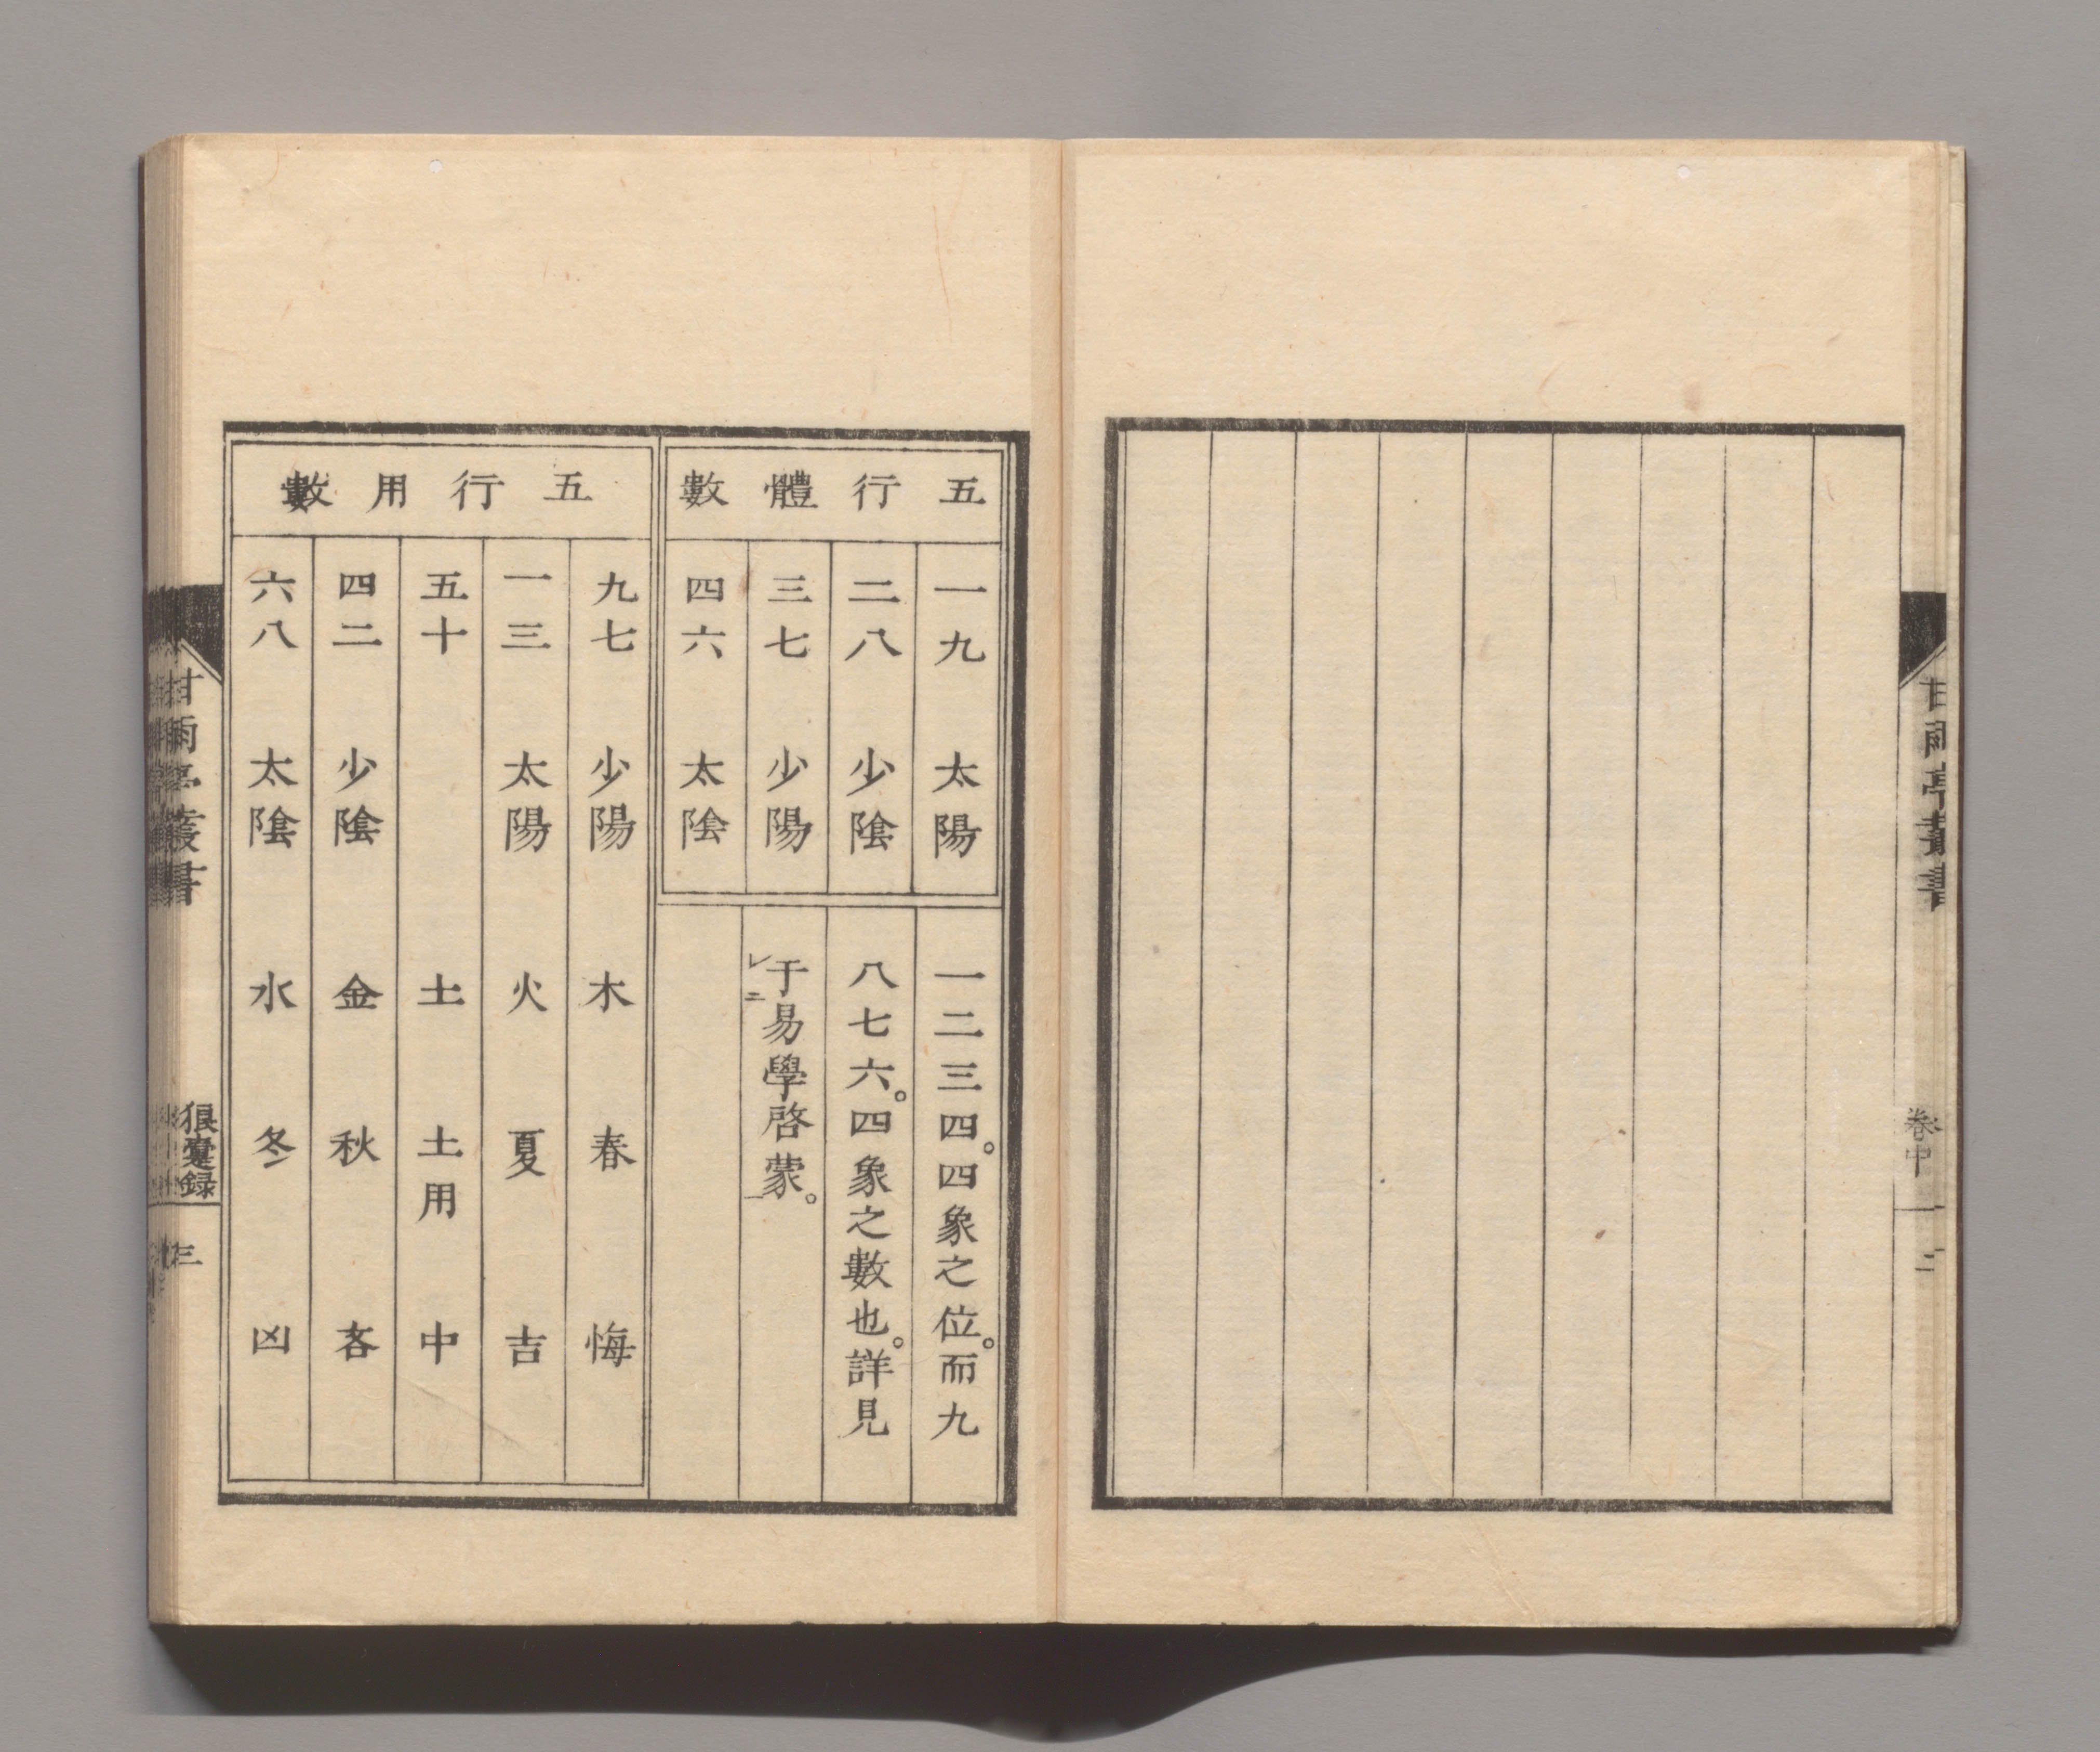 甘雨亭叢書
卷中
二
五行體數
一九 太陽
二八 少陰
三七 少陽
四六 太陰
一二三四。四象之位。而九
八七六。四象之數也。詳見
于易學啓蒙。
五行用數
九七 少陽 木 春 悔
一三 太陽 火 夏 吉
五十 土 土用 中
四二 少陰 金 秋 吝
六八 太陰 水 冬 凶
甘雨亭叢書
狼疐録
三